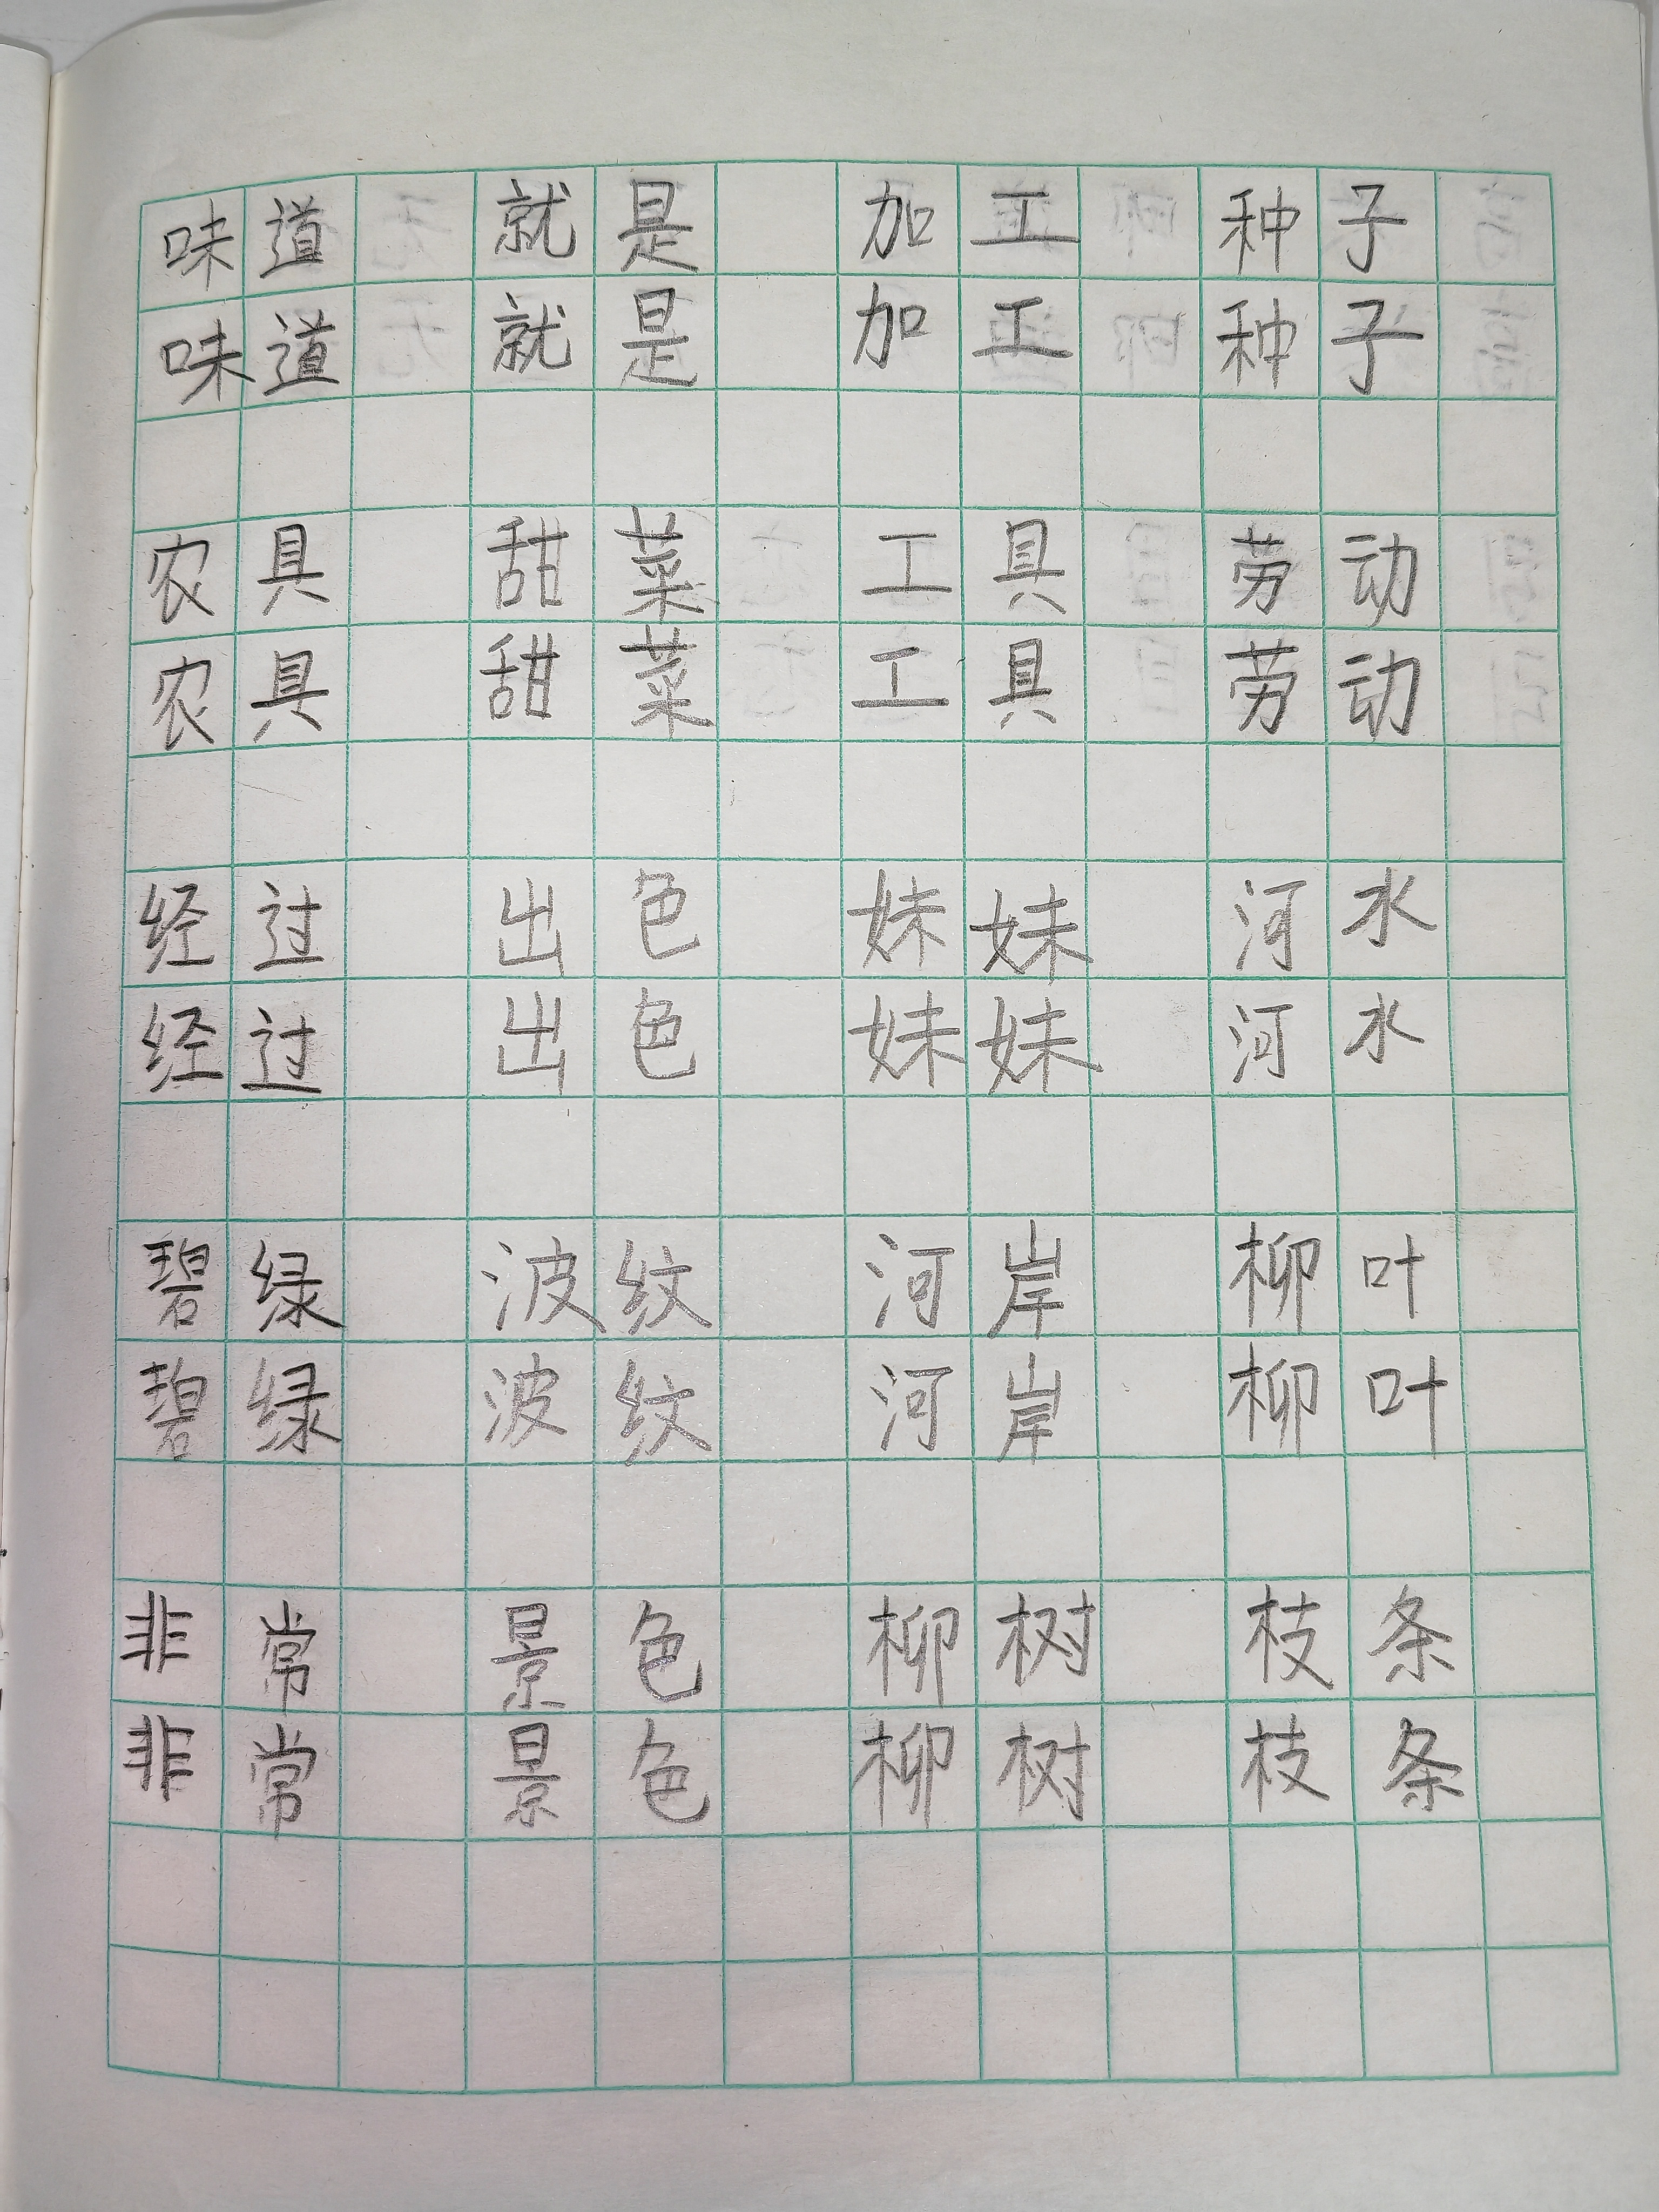 味道 就是 加工 种子
味道 就是 加工 种子
农具 甜菜 工具 劳动
农具 甜菜 工具 劳动
经过 出色 妹妹 河水
经过 出色 妹妹 河水
碧绿 波纹 河岸 柳叶
碧绿 波纹 河岸 柳叶
非常 景色 柳树 枝条
非常 景色 柳树 枝条